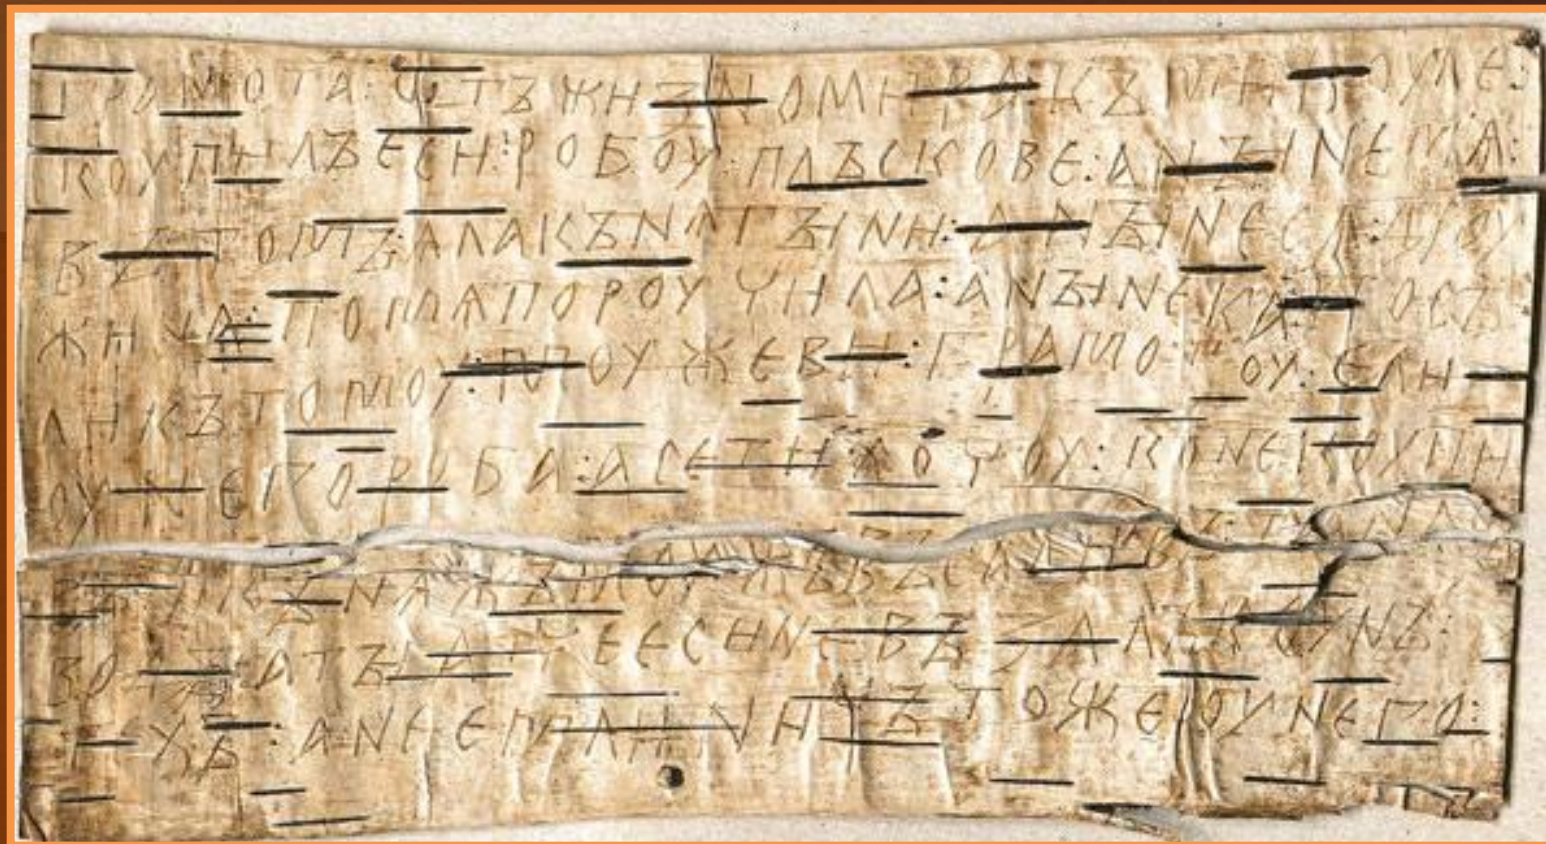 ГРАМОТА : ѠТЪ ЖИЗНОМИРА : КЪ МИКОУЛЕ :
КОУПИЛЪ ЕСИ : РОБОУ : ПЛЪСКОВЕ : А НЪІНЕ МѦ :
ВЪ ТОМЪ : ѦЛА КЪНѦГЪІНИ : А НЪІНЕ СѦ ДРОУ
ЖИНА : ПО МѦ ПОРОУЧИЛА : А НЪІНЕ КА : ПОСЪ
ЛИ КЪ ТОМОУ : МОУЖЕВИ : ГРАМОТОУ : ЕЛИ
ОУ НЕГО РОБА : А СЕ ТИ ХОЧОУ : КОНЕ КОУПИ
КЪНѦЖЪ МОУЖЪ ВЪСАДИВЪ : ТА НА
А ТЪІ АЧЕ ЕСИ НЕ ВЪЗАЛЪ КОУНЪ :
ТЕХЪ : А НЕ ЕМЛИ НИЧЪТО ЖЕ ОУ НЕГО :